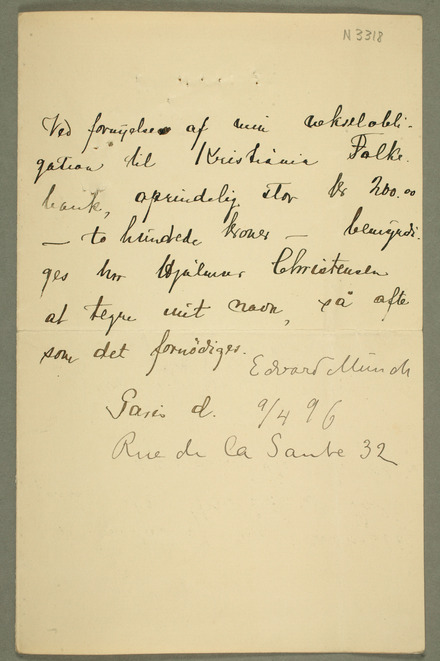 N 3318
Ved fornyelse af min vekselobli-
gation til Kristiania Folke-
bank, oprindelig stor kr 200.00
— to hundrede kroner — bemyndi-
ges hr Hjalmar Christensen
at tegne mit navn, så ofte
som det fornødiges.
Edvard Munch
Paris d. 9/4 96
Rue de la Sante 32